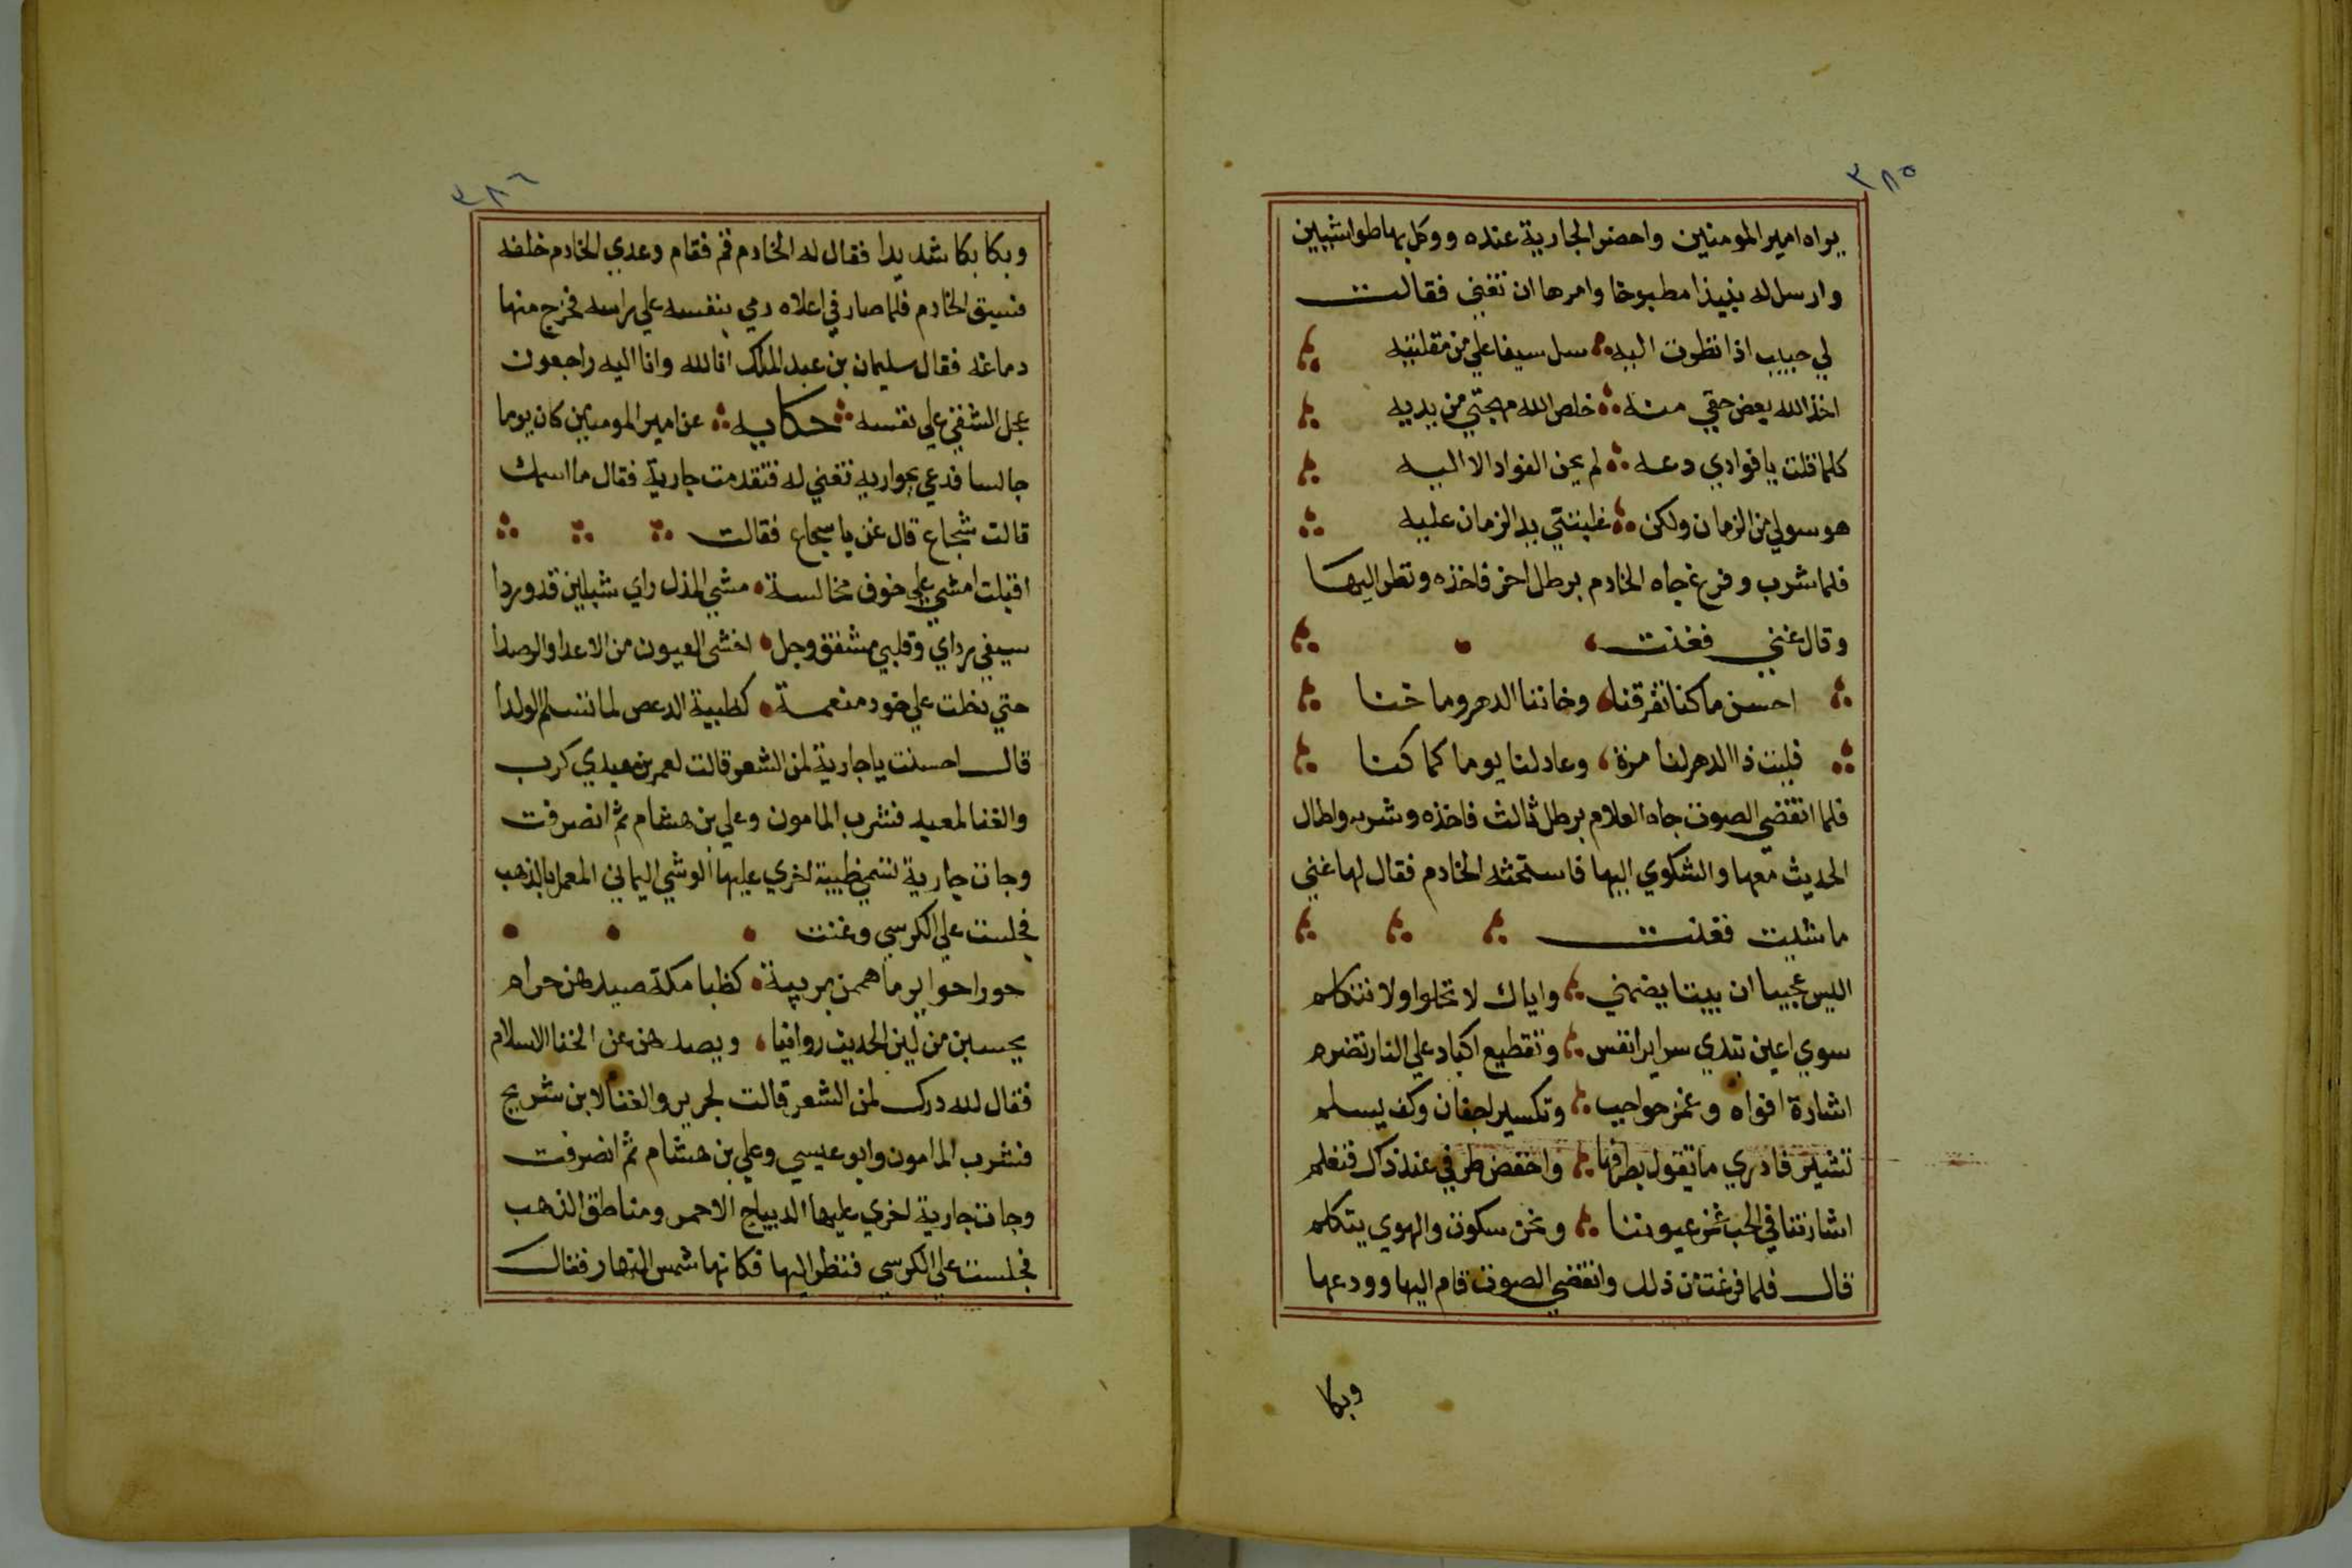 ٣٨٥
يراه امير المومنين واحضر الجارية عنده ووكل بها طواشيين
وارسل له بنيذا مطبوخا وامرها ان تغني فقالت
لي حبيب اذا نظرت اليه سل سيفا علي من مقلتيه
اخذ الله بعض حقي منه خلص الله مهجتي من يديه
كلما قلت يا فوادي دعه لم يحن الفواد الا اليه
هو سولي من الزمان ولكن غلبتني يد الزمان عليه
فلما شرب وفرغ جاه الخادم برطل اخر فاخذه ونظر اليها
وقال غني فغنت
احسن ما كنا تفرقنا وخاننا الدهر وما خنا
فليت ذا الدهر لنا مرة وعاد لنا يوما كما كنا
فلما انقضي الصوت جاه الغلام برطل ثالث فاخذه وشربه واطال
الحديث معها والشكوي اليها فاستحثه الخادم فقال لها غني
ما شيت فغنت
اليس عجيبا ان بيتا يضمني واياك لا نخلوا ولا نتكلم
سوي اعين تبدي سراير انفس وتقطيع اكباد علي النار تضرم
اشارة افواه وغمز حواجب وتكسير اجفان وكف يسلم
تشير فادري ما تقول بطرفها واخفض طرفي عند ذاك فتعلم
اشارتنا في الحب غمز عيوننا ونحن سكوت والهوي يتكلم
قال فلما فرغت من ذلك وانقضي الصوت قام اليها وودعها
وبكا
٣٨٦
وبكا بكا شديدا فقال له الخادم قم فقام وعدي الخادم خلفه
فسبق الخادم فلما صار في اعلاه رمي بنفسه علي راسه فخرج منها
دماغه فقال سليمان بن عبد الملك انا لله وانا اليه راجعون
عجل الشقي علي نفسه حكايه عن امير المومنين كان يوما
جالسا فدعي بجواريه تغني له فتقدمت جارية فقال ما اسمك
قالت شجاع قال غن يا سجاع فقالت
اقبلت امشي علي خوف مخالسة مشي المذل راي شبلين قد وردا
سيفي رداي وقلبي مشفق وجل اخشي العيون من الاعدا والرصدا
حتي دخلت علي خود منعمة كظبية الدعص لما تسلم الولدا
قال احسنت يا جارية لمن الشعر قالت لعمر بن معيدي كرب
والغنا لمعبد فشرب المامون وعلي بن هشام ثم انصرفت
وجات جارية تسمي ظبية اخري عليها الوشي اليماني المعمل بالذهب
فجلست علي الكرسي وغنت
حورا حواير ما هممن بريبة كظبا مكة صيدهن حرام
يحسبن من لين الحديث روانيا ويصدهن عن الخنا الاسلام
فقال لله درك لمن الشعر قالت لجرير والغنا لابن شريح
فشرب المامون وابو عيسي وعلي بن هشام ثم انصرفت
وجات جارية اخري عليها الديباج الاحمر ومناطق الذهب
فجلست علي الكرسي فنظر اليها فكانها شمس النهار فقال